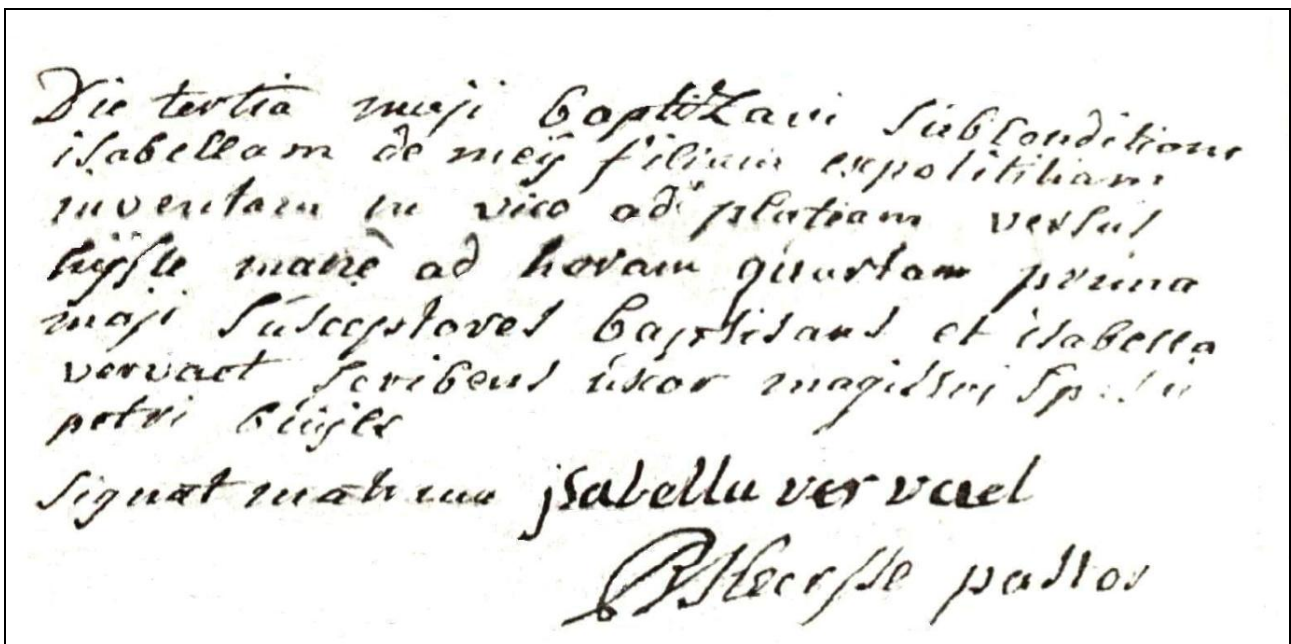 Die tertia maji baptizavi sub conditione
isabellam de meÿ filiam exposititiam
inventam in vico ad plateam versus
hÿste manè ad horam quartam prima
maji Susceptores baptisans et isabella
vervaet scribens uxor magistri
petri buijls
signat isabella ver vael
pastor